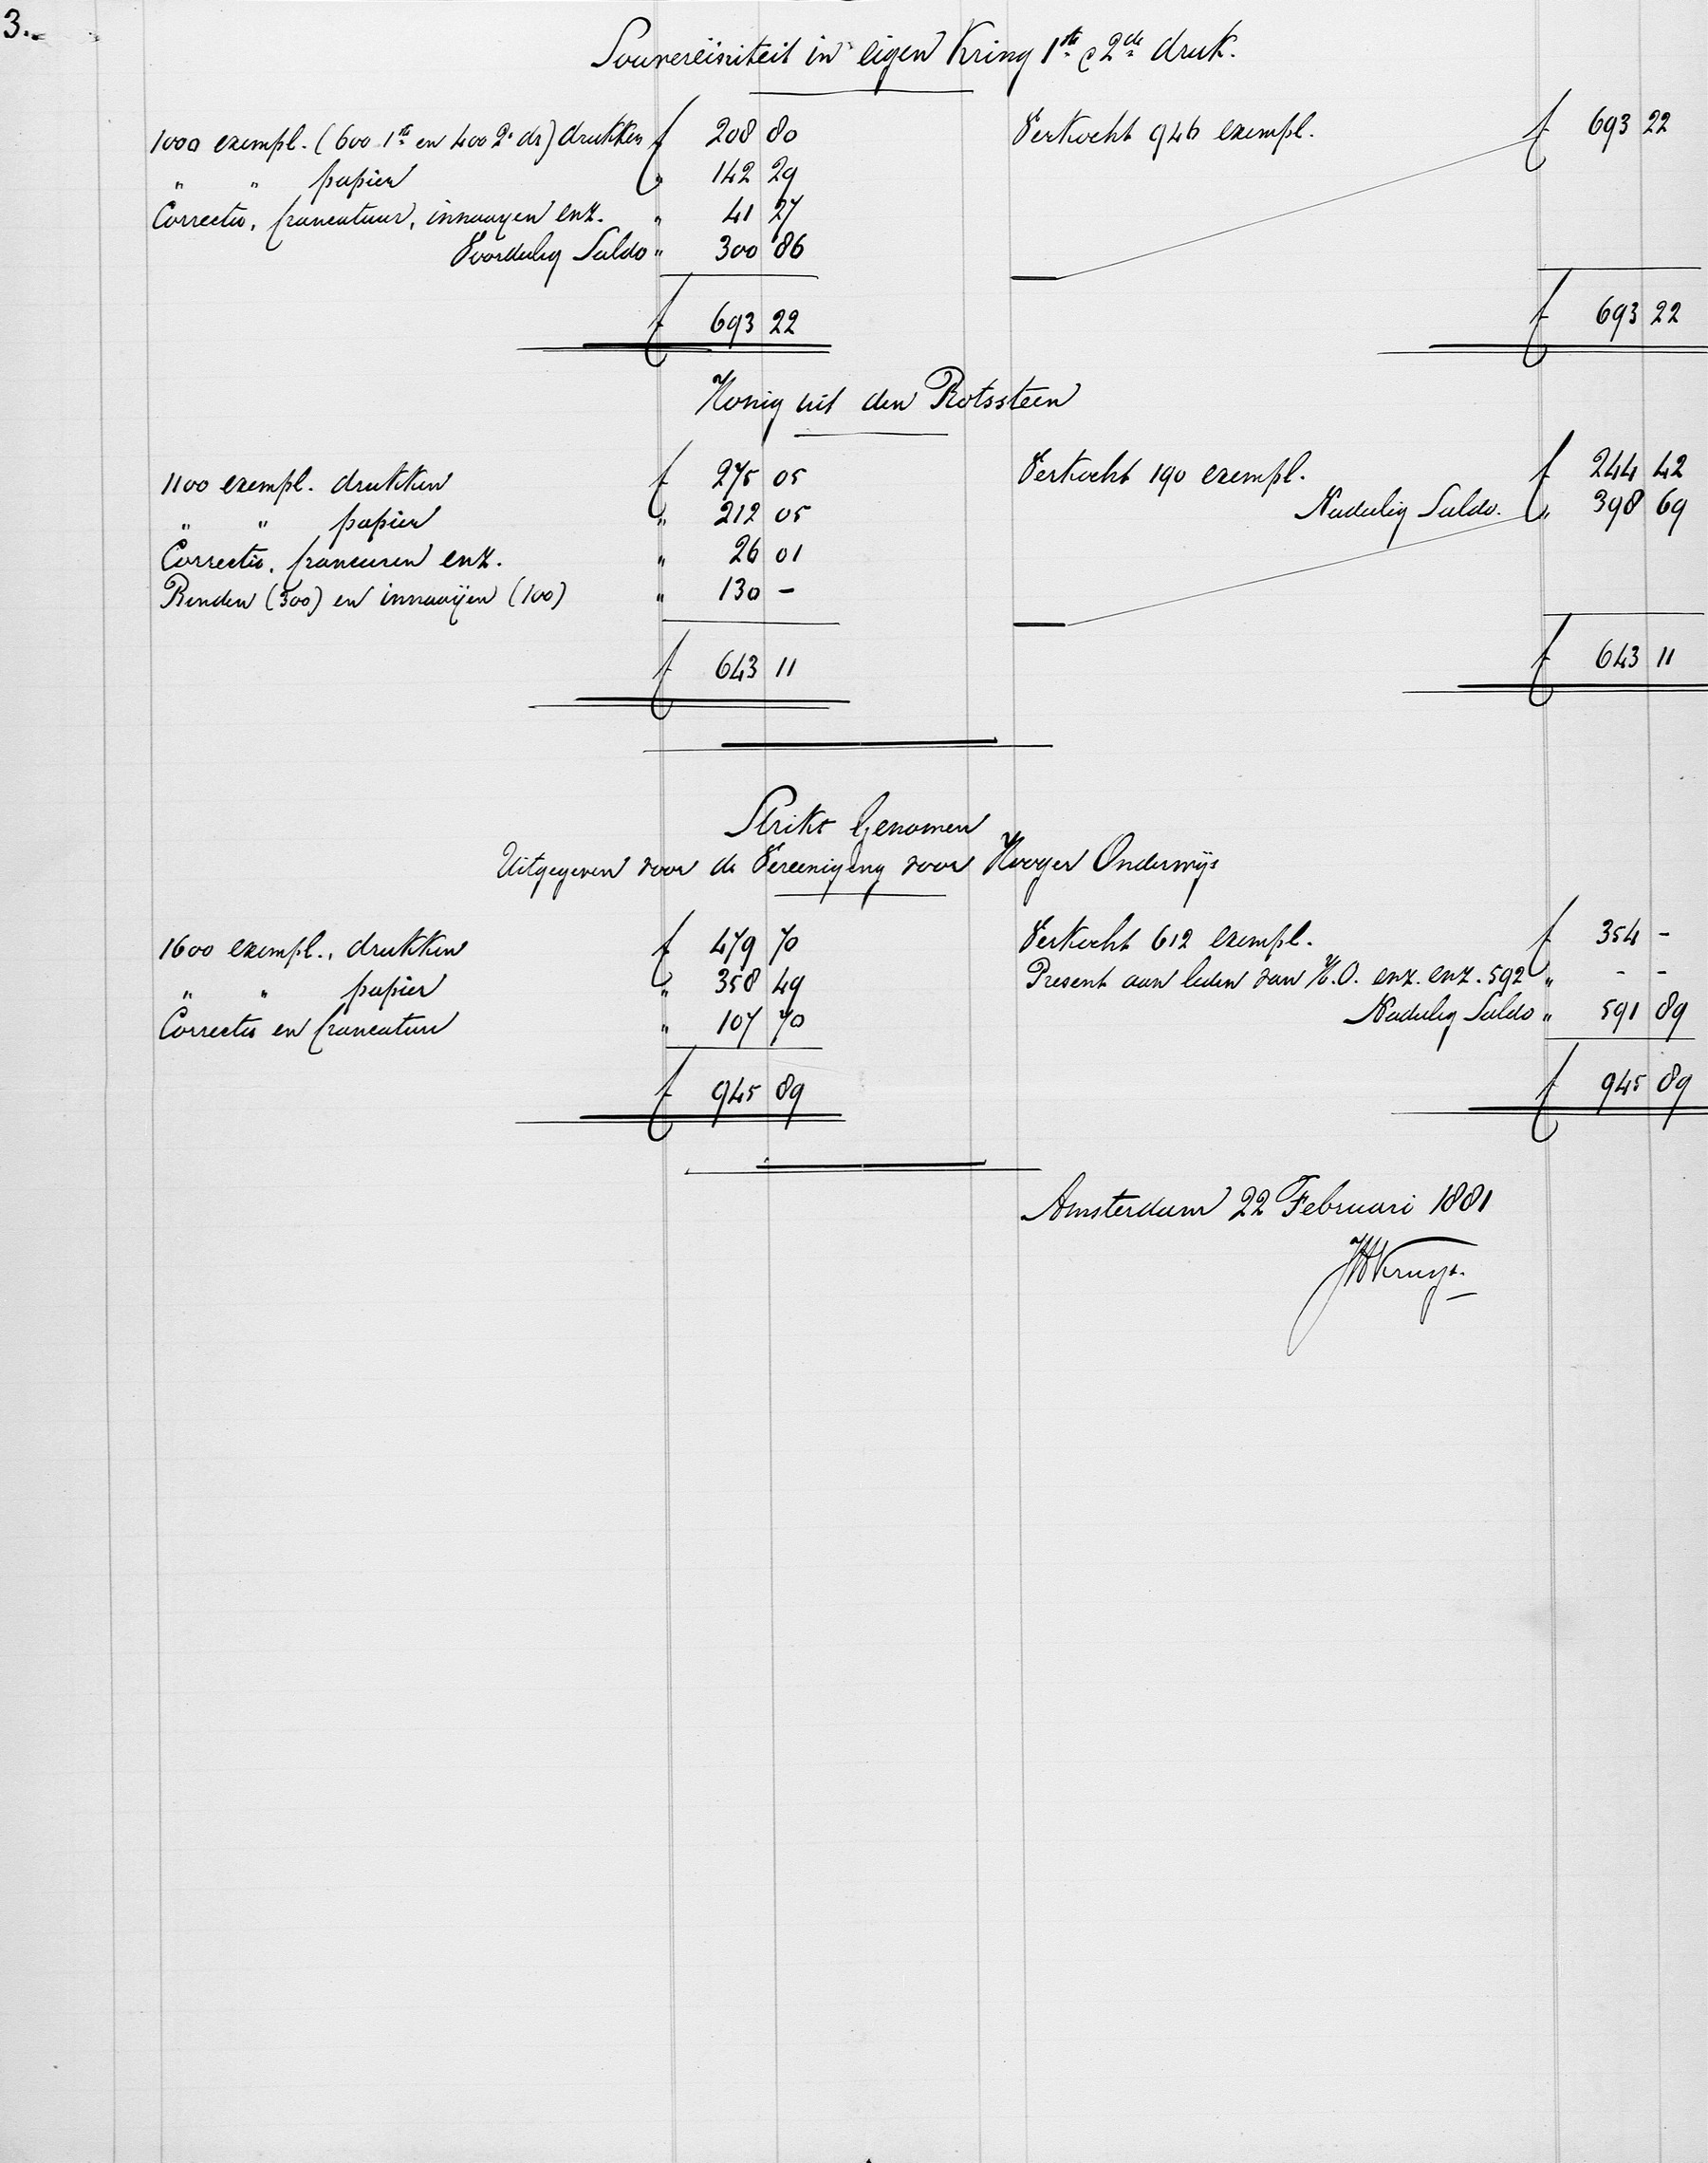 3.
Souvereiniteit in eigen Kring 1ste & 2de druk.
1000 exempl. (600 1ste en 400 2e dr) drukken f 208 80
" " papier " 142 29
Correctie, francatuur, innaayen enz. " 41 27
Voordelig Saldo " 300 86
f 693 22
Verkocht 946 exempl. f 693 22
f 693 22
Honig uit den Rotssteen
1100 exempl. drukken f 275 05
" " papier " 212 05
Correctie, franceren enz. " 26 01
Binden (300) en innaaijen (100) " 130 -
f 643 11
Verkocht 190 exempl. f 244 42
Nadelig Saldo. " 398 69
f 643 11
Strikt Genomen
Uitgegeven voor de Vereeniging voor Hooger Onderwijs
1600 exempl., drukken f 479 70
" " papier " 358 49
Correctie en francatuur " 107 70
f 945 89
Verkocht 612 exempl. f 354 -
Present aan leden van H.O. enz. enz. 592 " - -
Nadelig Saldo " 591 89
f 945 89
Amsterdam 22 Februari 1881
JHKruyt.